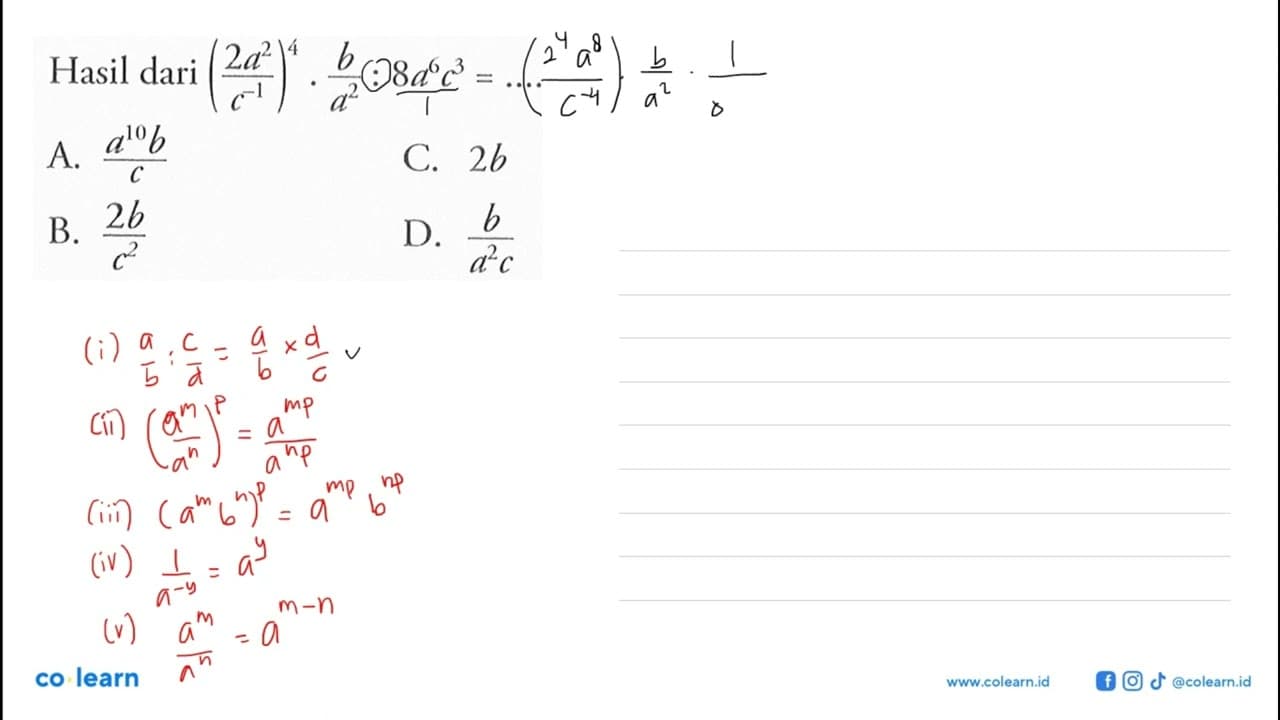 Hasil dari (2a²/c⁻¹)⁴ · b/a² : 8a⁶c³/1 = .... (2⁴a⁸/c⁻⁴) · b/a² · 1/8
A. a¹⁰b/c C. 2b
B. 2b/c² D. b/a²c
(i) a/b : c/d = a/b × d/c ✓
(ii) (aᵐ/aⁿ)ᵖ = aᵐᵖ/aⁿᵖ
(iii) (aᵐbⁿ)ᵖ = aᵐᵖ bⁿᵖ
(iv) 1/a⁻ʸ = aʸ
(v) aᵐ/aⁿ = aᵐ⁻ⁿ
co·learn www.colearn.id @colearn.id